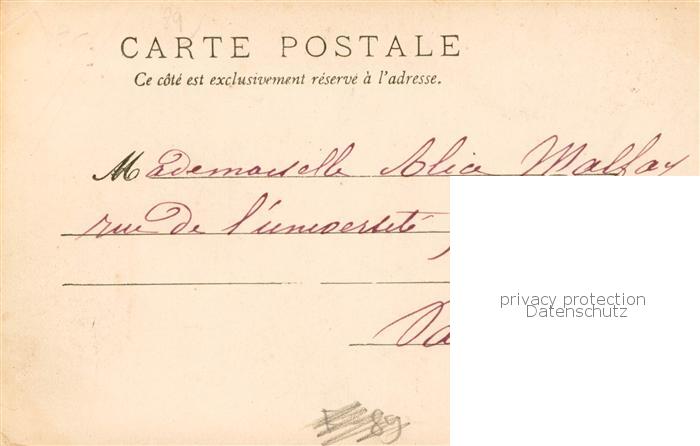 89
CARTE POSTALE
Ce côté est exclusivement réservé à l'adresse.
Mademoiselle Alice
rue de l'université
privacy protection
Datenschutz
89